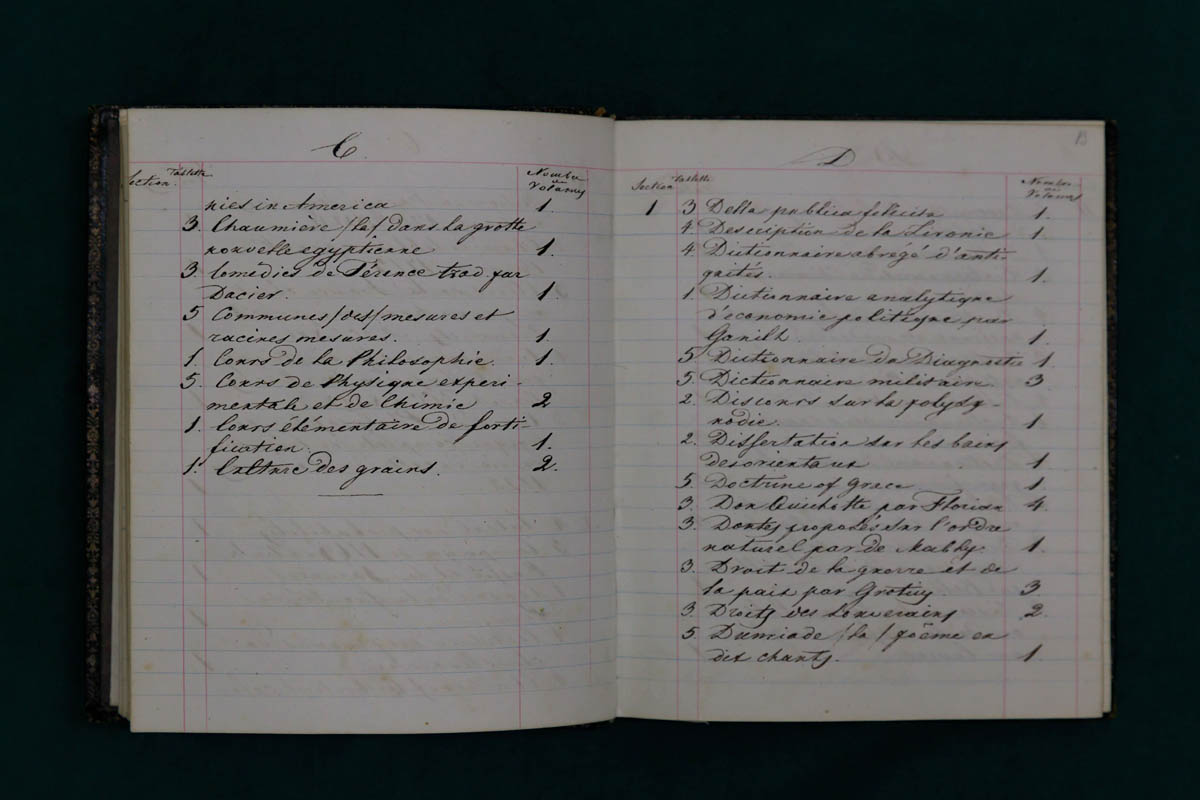 C.
Section. Tablette Nombre de Volumes
nies in America 1.
3. Chaumière /la/ dans la grotte
nouvelle egyptienne 1.
3. Comédies de Térence trad par
Dacier. 1.
5 Communes /des/ mesures et
racines mesures. 1.
1. Cours de la Philosophie. 1.
5. Cours de Physique experi-
mentale et de Chimie 2
1. Cours élémentaire de forti
fication 1.
1. Culture des grains. 2.
13
D
Section Tablette Nombre de Volumes
1 3 Della publica felicita 1.
4 Description de la Livonie 1.
4. Dictionnaire abrégé d'anti-
quités. 1.
1. Dictionnaire analytique
d'economie politique par
Ganilh. 1.
5. Dictionnaire de Diagnostic 1.
5. Dictionnaire militaire. 3
2. Discours sur la polysy-
nodie. 1
2. Dissertation sur les bains
des orientaux 1.
5. Doctrine of Grace. 1.
3. Don Quichotte par Florian 4.
3. Doutes proposés sur l'ordre
naturel par de Mably. 1.
3. Droit de la guerre et de
la paix par Grotius 3.
3. Droits des Souverains 2.
5. Dunciade /la/ poëme en
dix chants. 1.